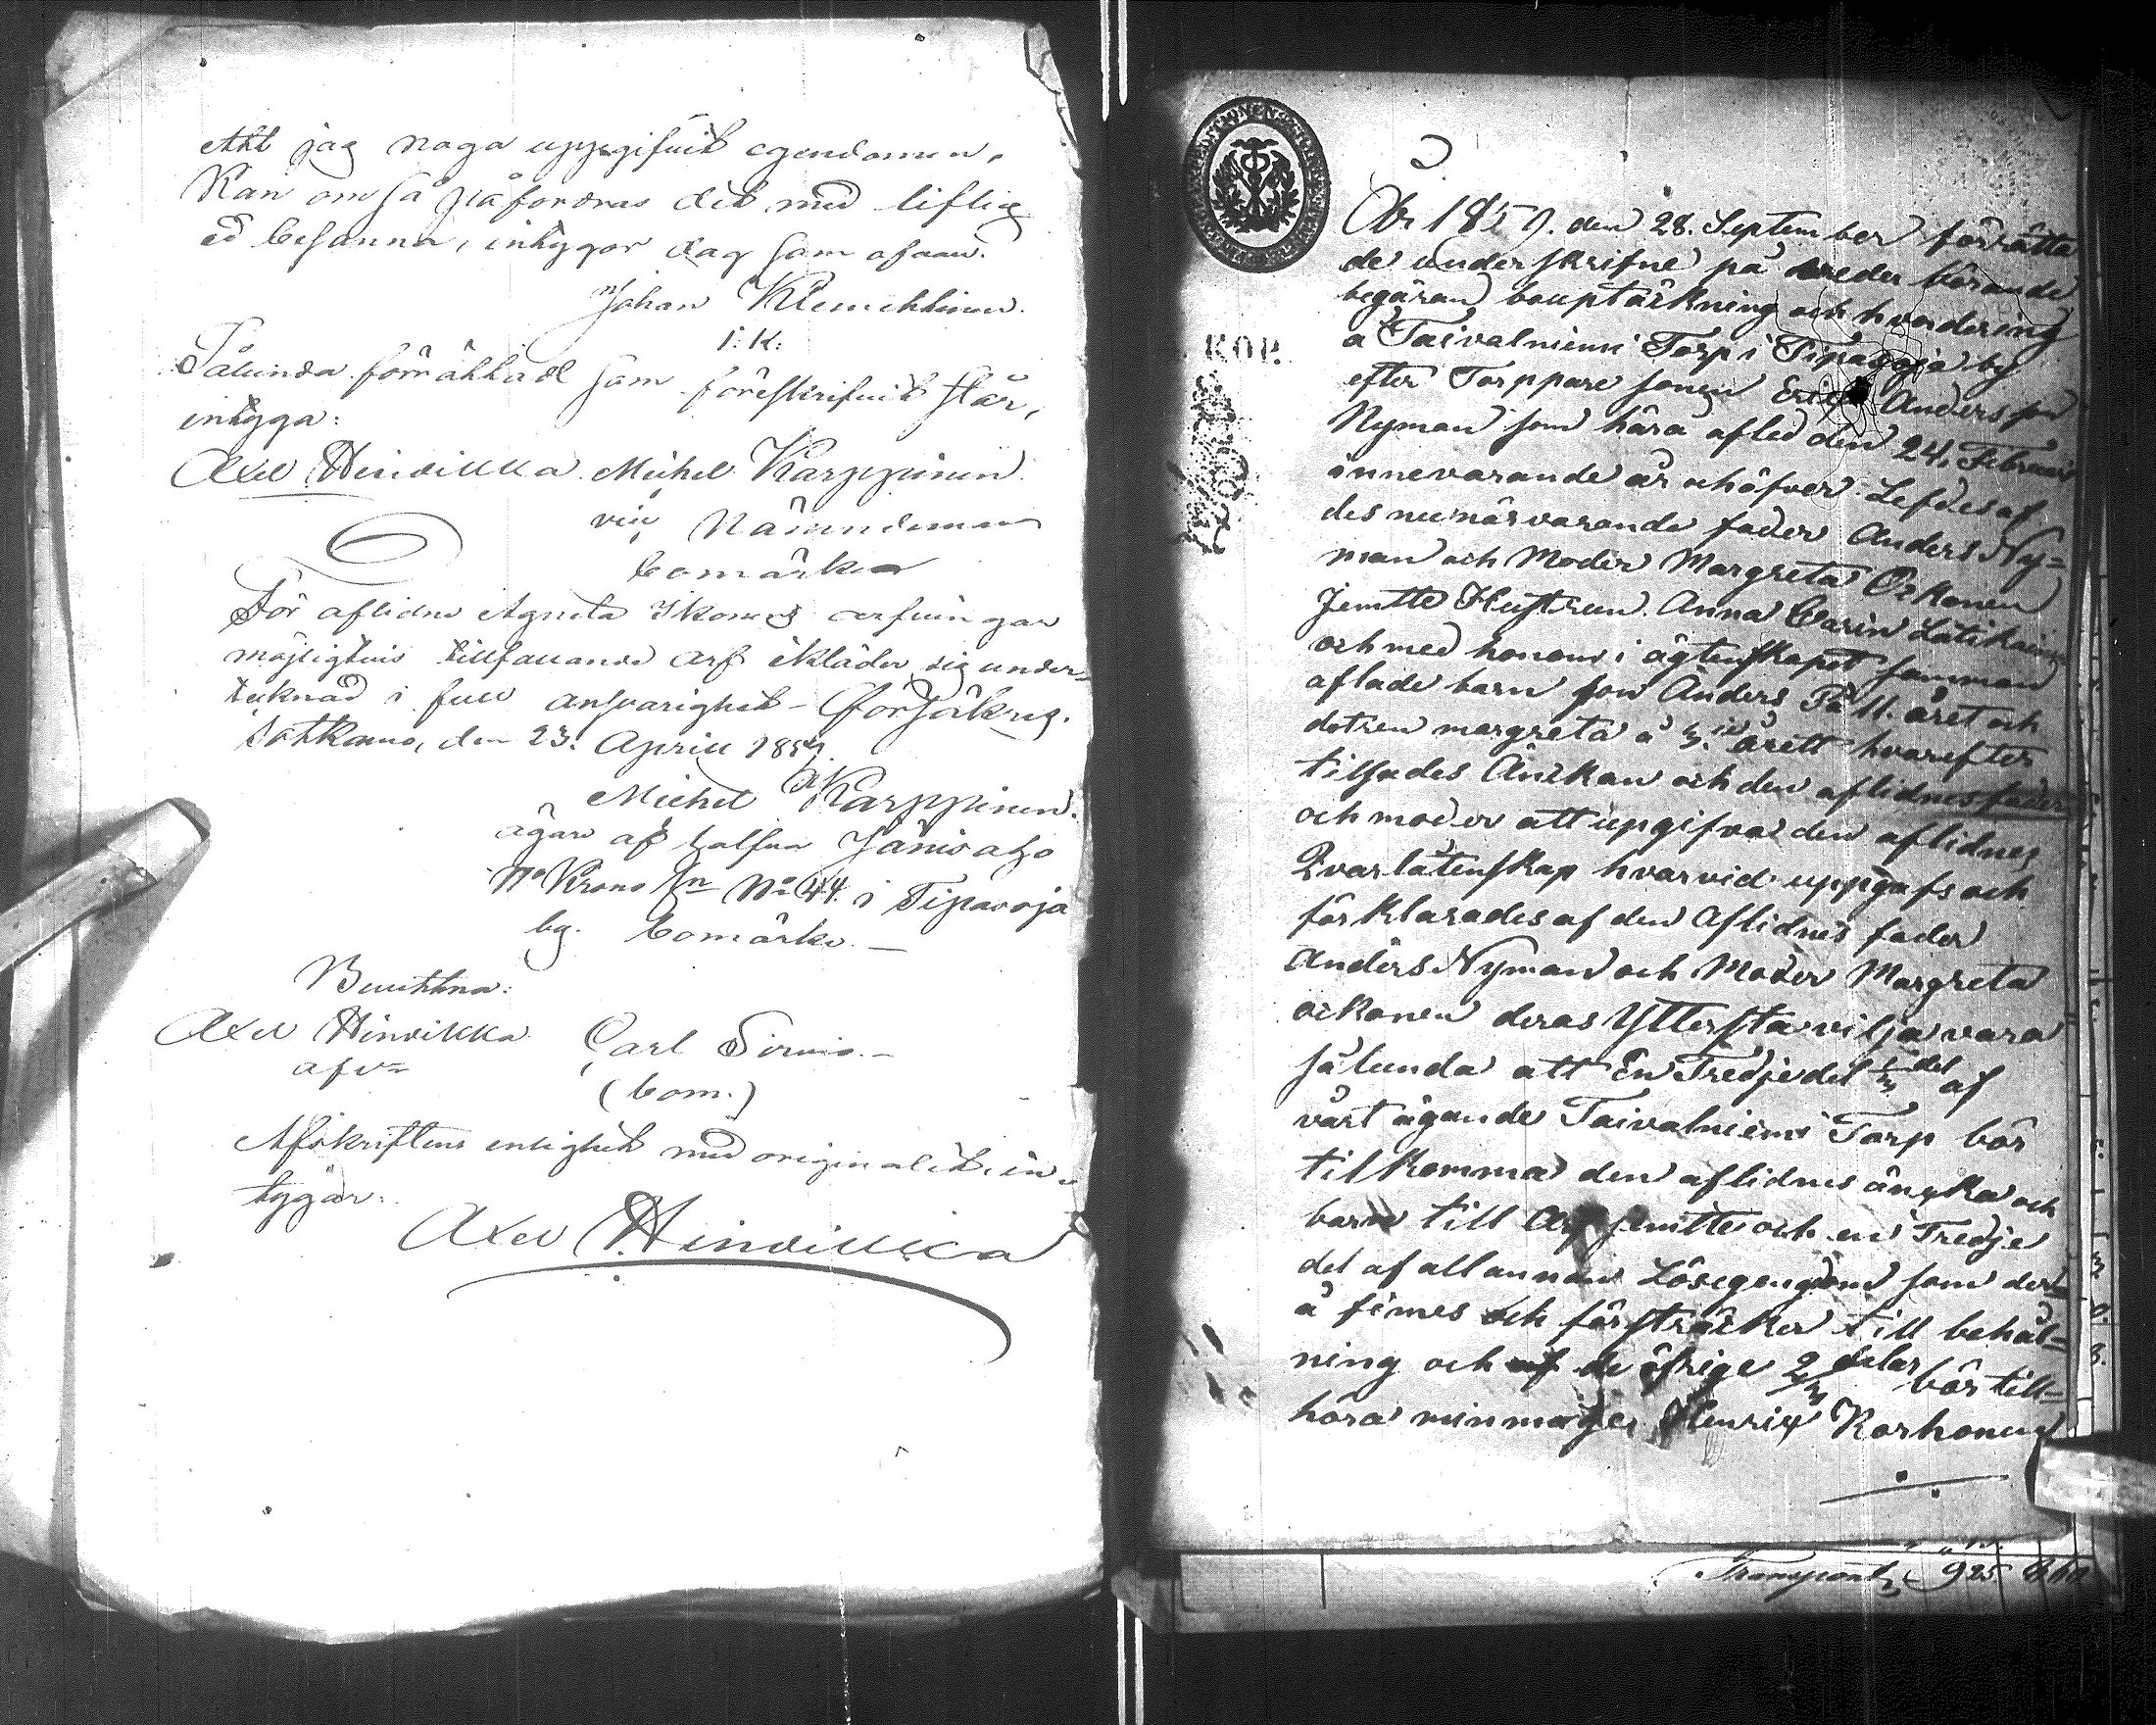 Att jag noga uppgifvit egendomen,
Kan om så påfordras det med liflig
ed besanna, intygar dag som ofvan.
Johan Klemettinen.
i: K:
Sålunda förrättadt som föreskrifvit står,
intyga:
Axel Hindikka. Michel Karppinen
Nämndeman
bomärke
För aflidne Agneta Ikonens arfvingar
möjligtvis tillfallande arf ikläder sig under-
tecknad i full ansvarighet – försäkras.
Sotkamo, den 23. April 1859.
Michel Karppinen.
ägare af halfva Jänisaho
Krono N:o 44. i Tipasoja
by. bomärke. –
Bevittna:
Axel Hindikka Carl Sirviö. –
(bom.)
Afskriftens enlighet med originalet, in-
tygar:
Axel Hindikka
KOP.
År 1859. den 28. September förrätta
de underskrifne på vederbörande
begäran bouptäckning och hvärdering
å Taivalniemi Torp i Tipasoja by
efter Torppare sonen Eric Andersson
Nyman som härå afled den 24. Februari
innevarande år och öfver Lefdes af
des nu närvarande fader Anders Ny=
man och Moder Margreta Ockonen
Jemtte Hustrun Anna Carin Latikainen
och med honom i ägtenskapet samman
aflade barn son Anders På 11. året och
dotren margreta å årett hvarefter
tilsades Änckan och den aflidnes fader
och moder att upgifva den aflidnes
Qvarlåtenskap hvarvid uppgafs och
förklarades af den Aflidnes fader
Anders Nyman och Moder Margreta
ockonen deras Yttersta vilja vara
sålunda att En Tredjedel 1/3 del af
vårt ägande Taivalniemi Torp bör
tilkomma den aflidnes änçka och
barn till Arf jemtte och en Tredje
del af all annan Lösegengdom som der=
å finnes och försträcker till behål=
ning och de öfrige 2/3 delar bör till=
höra min mågei Henrix Korhonen
Transport 925